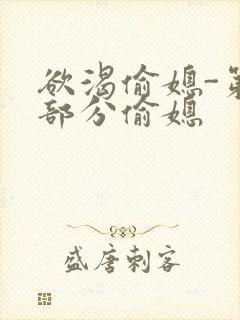 欲渴偷媳-第
部分偷媳
盛唐刺客